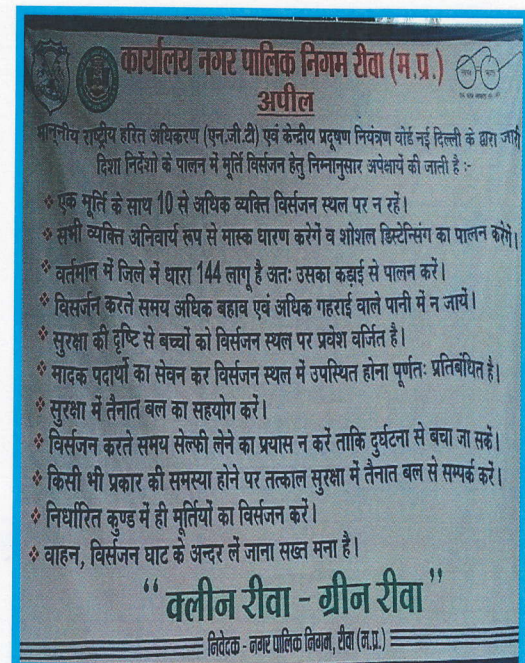 कार्यालय नगर पालिक निगम रीवा (म.प्र.)
अपील
माननीय राष्ट्रीय हरित अधिकरण (एन.जी.टी) एवं केन्द्रीय प्रदूषण नियंत्रण बोर्ड नई दिल्ली के द्वारा जारी
दिशा निर्देशो के पालन में मूर्ति विसंजन हेतु निम्नानुसार अपेक्षायें की जाती है :-
❖ एक मूर्ति के साथ 10 से अधिक व्यक्ति विर्सजन स्थल पर न रहें।
❖ सभी व्यक्ति अनिवार्य रूप से मास्क धारण करेगें व शोशल डिस्टेन्सिंग का पालन करेंगे।
❖ वर्तमान में जिले में धारा 144 लागू है अतः उसका कड़ाई से पालन करें।
❖ विसर्जन करते समय अधिक बहाव एवं अधिक गहराई वाले पानी में न जायें।
❖ सुरक्षा की दृष्टि से बच्चों को विर्सजन स्थल पर प्रवेश वर्जित है।
❖ मादक पदार्थो का सेवन कर विर्सजन स्थल में उपस्थित होना पूर्णतः प्रतिबंधित है।
❖ सुरक्षा में तैनात बल का सहयोग करें।
❖ विर्सजन करते समय सेल्फी लेने का प्रयास न करें ताकि दुर्घटना से बचा जा सकें।
❖ किसी भी प्रकार की समस्या होने पर तत्काल सुरक्षा में तैनात बल से सम्पर्क करें।
❖ निर्धारित कुण्ड में ही मूर्तियों का विर्सजन करें।
❖ वाहन, विर्सजन घाट के अन्दर लें जाना सख्त मना है।
“ क्लीन रीवा - ग्रीन रीवा ”
निवेदक - नगर पालिक निगम, रीवा (म.प्र.)